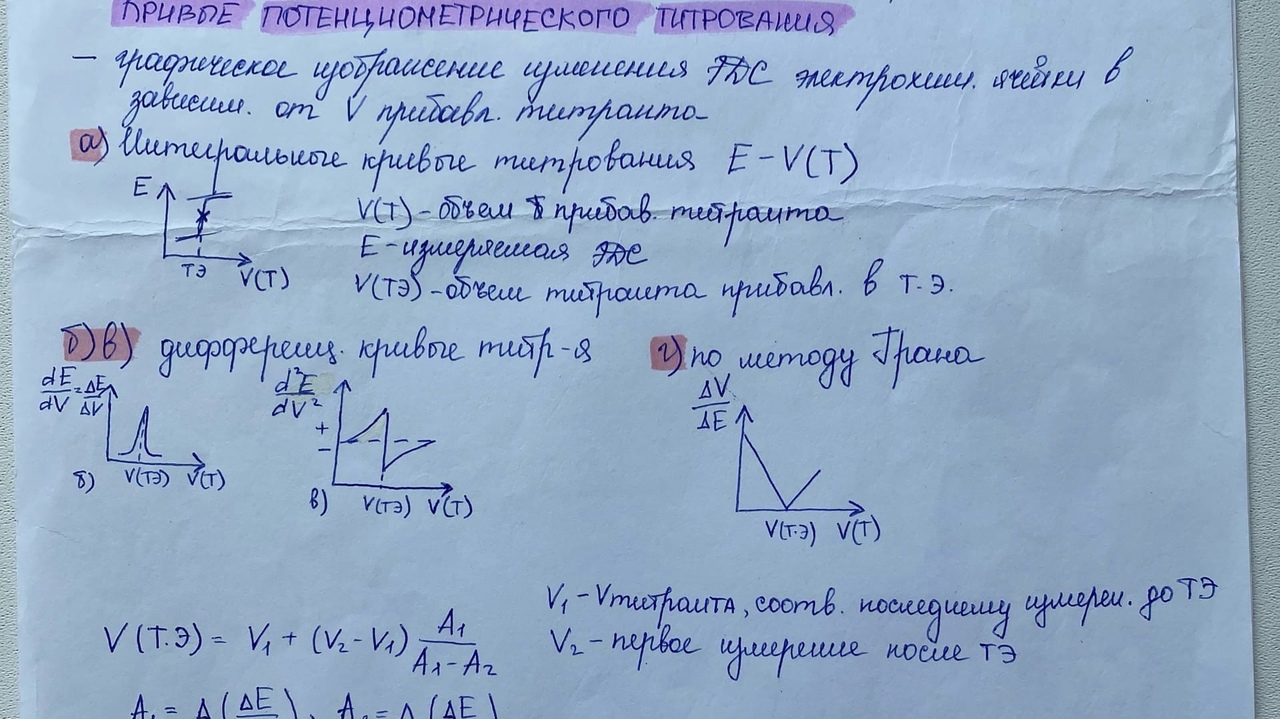 КРИВЫЕ ПОТЕНЦИОМЕТРИЧЕСКОГО ТИТРОВАНИЯ
— графическое изображение изменения ЭДС электрохим. ячейки в
зависим. от V прибавл. титранта
а) Интегральные кривые титрования E – V(T)
E
ТЭ
V(T)
V(T) – объем прибав. титранта
E – измеряемая ЭДС
V(ТЭ) – объем титранта прибавл. в т.э.
б) в) дифференц. кривые титр-я
г) по методу Грана
dE/dV = ΔE/ΔV
V(ТЭ) V(T)
б)
d²E/dV²
+
–
V(ТЭ) V(T)
в)
ΔV/ΔE
V(Т.Э) V(T)
V(Т.Э) = V₁ + (V₂ – V₁) A₁/(A₁ – A₂)
V₁ – Vтитранта, соотв. последнему измерен. до ТЭ
V₂ – первое измерение после ТЭ
A₁ = Δ(ΔE), A₂ = Δ(ΔE)